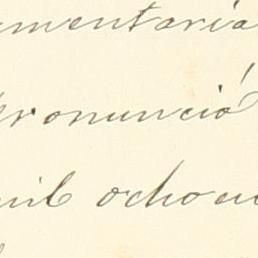 mentaria
pronunció
mil ocho